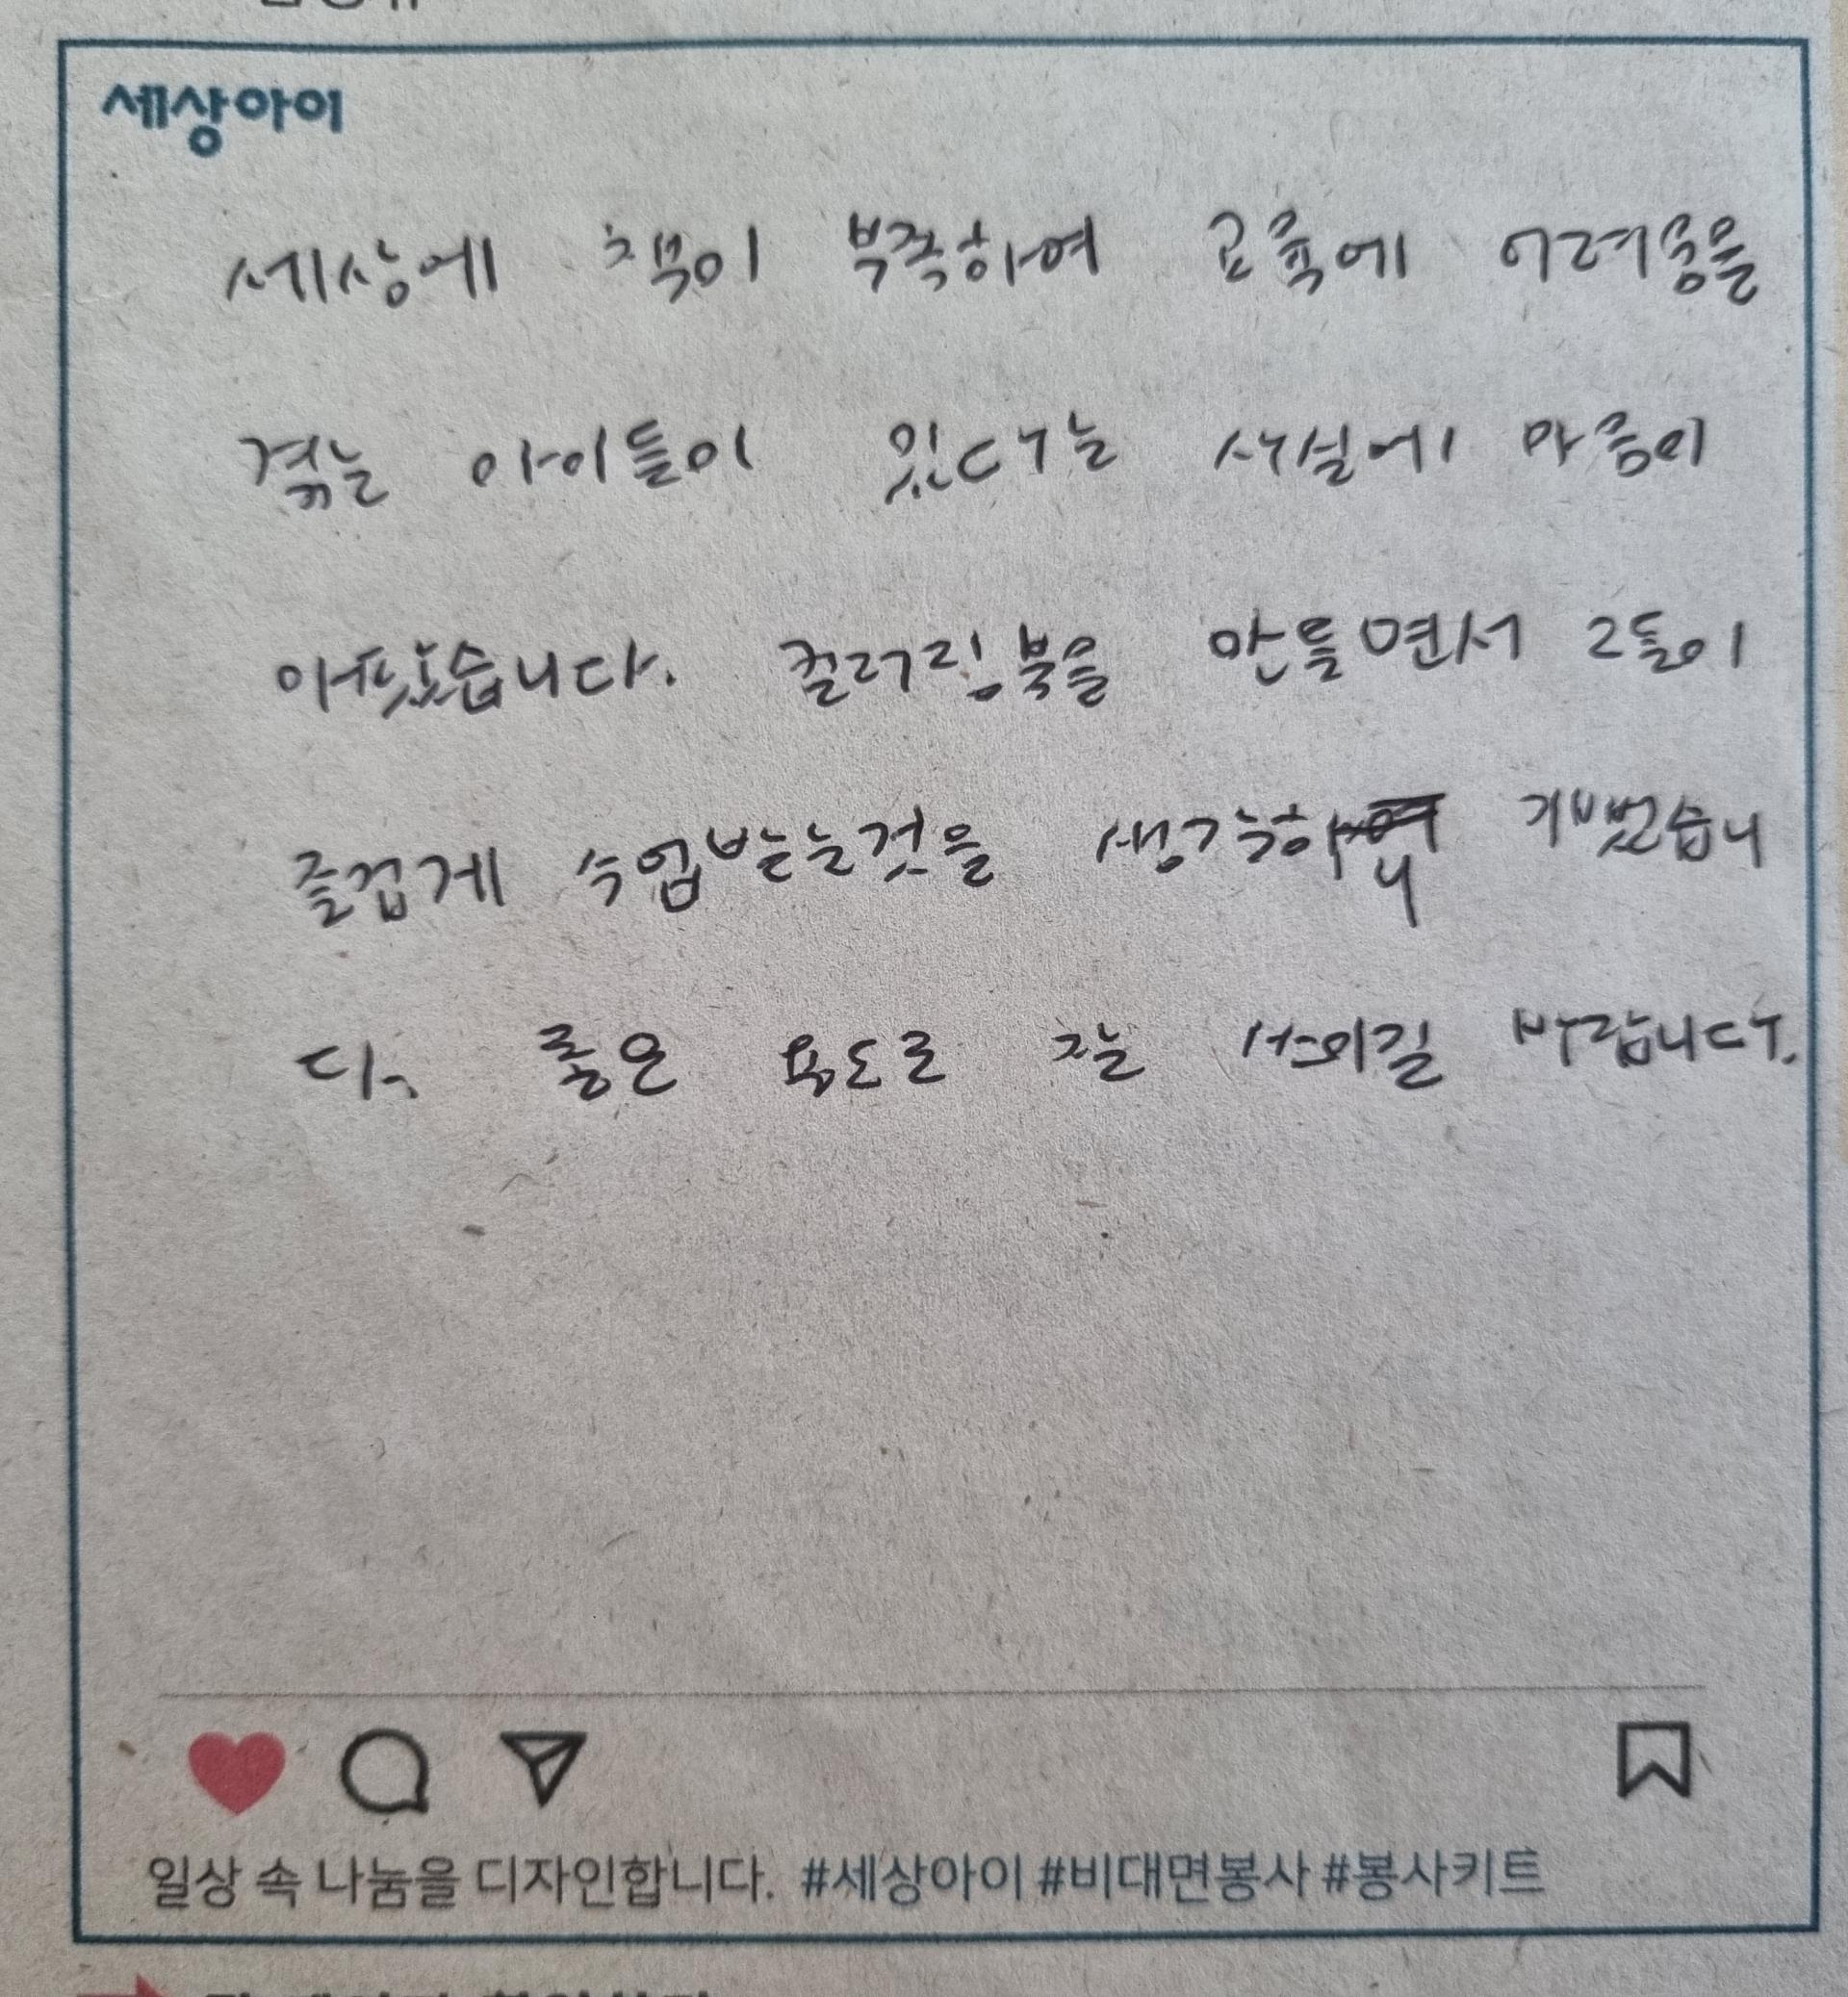 세상아이
세상에 책이 부족하여 교육에 어려움을
겪는 아이들이 있다는 사실에 마음이
아팠습니다. 컬러링북을 만들면서 그들이
즐겁게 수업받는것을 생각하니 기뻤습니
다. 좋은 용도로 잘 쓰이길 바랍니다.
일상 속 나눔을 디자인합니다. #세상아이 #비대면봉사 #봉사키트